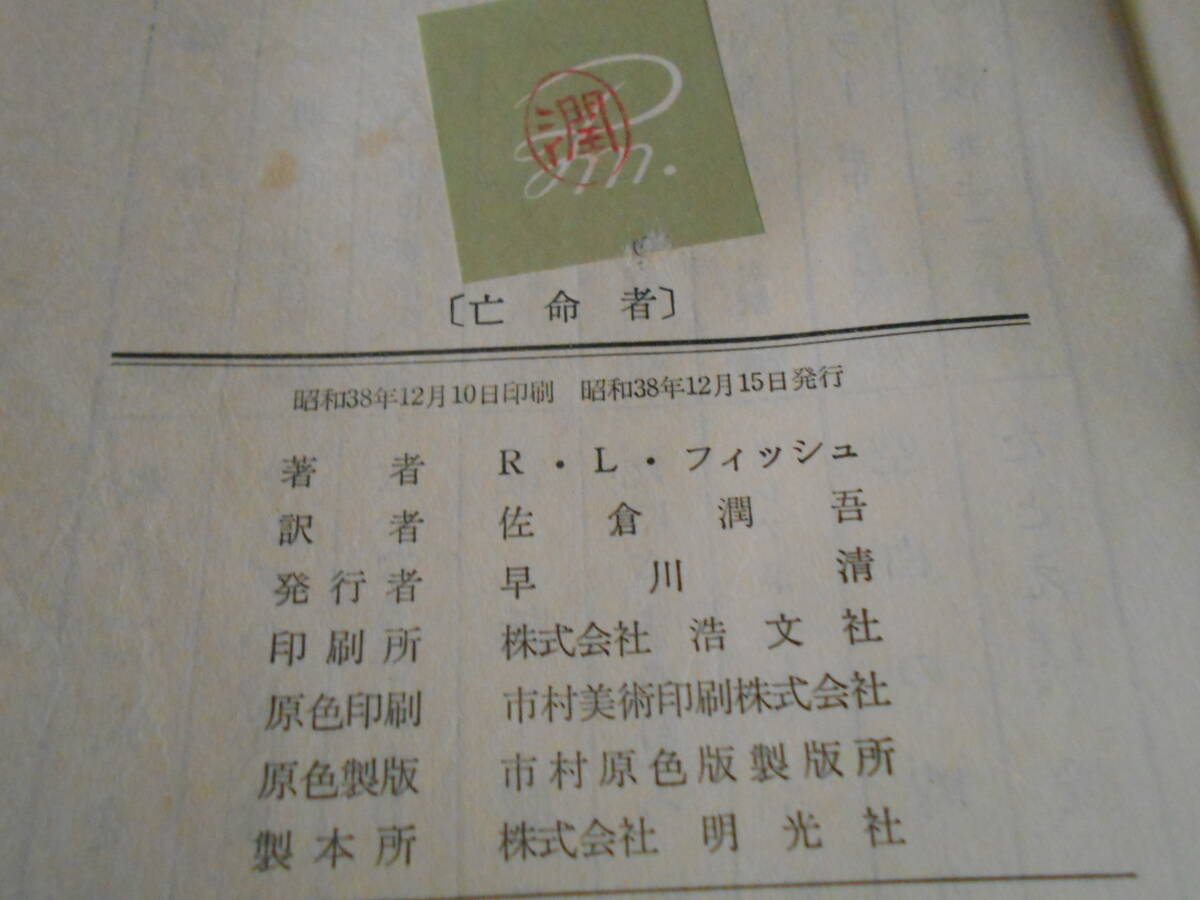 Pm.
潤
〔亡命者〕
昭和38年12月10日印刷 昭和38年12月15日発行
著者 R・L・フィッシュ
訳者 佐倉潤吾
発行者 早川清
印刷所 株式会社 浩文社
原色印刷 市村美術印刷株式会社
原色製版 市村原色版製版所
製本所 株式会社 明光社